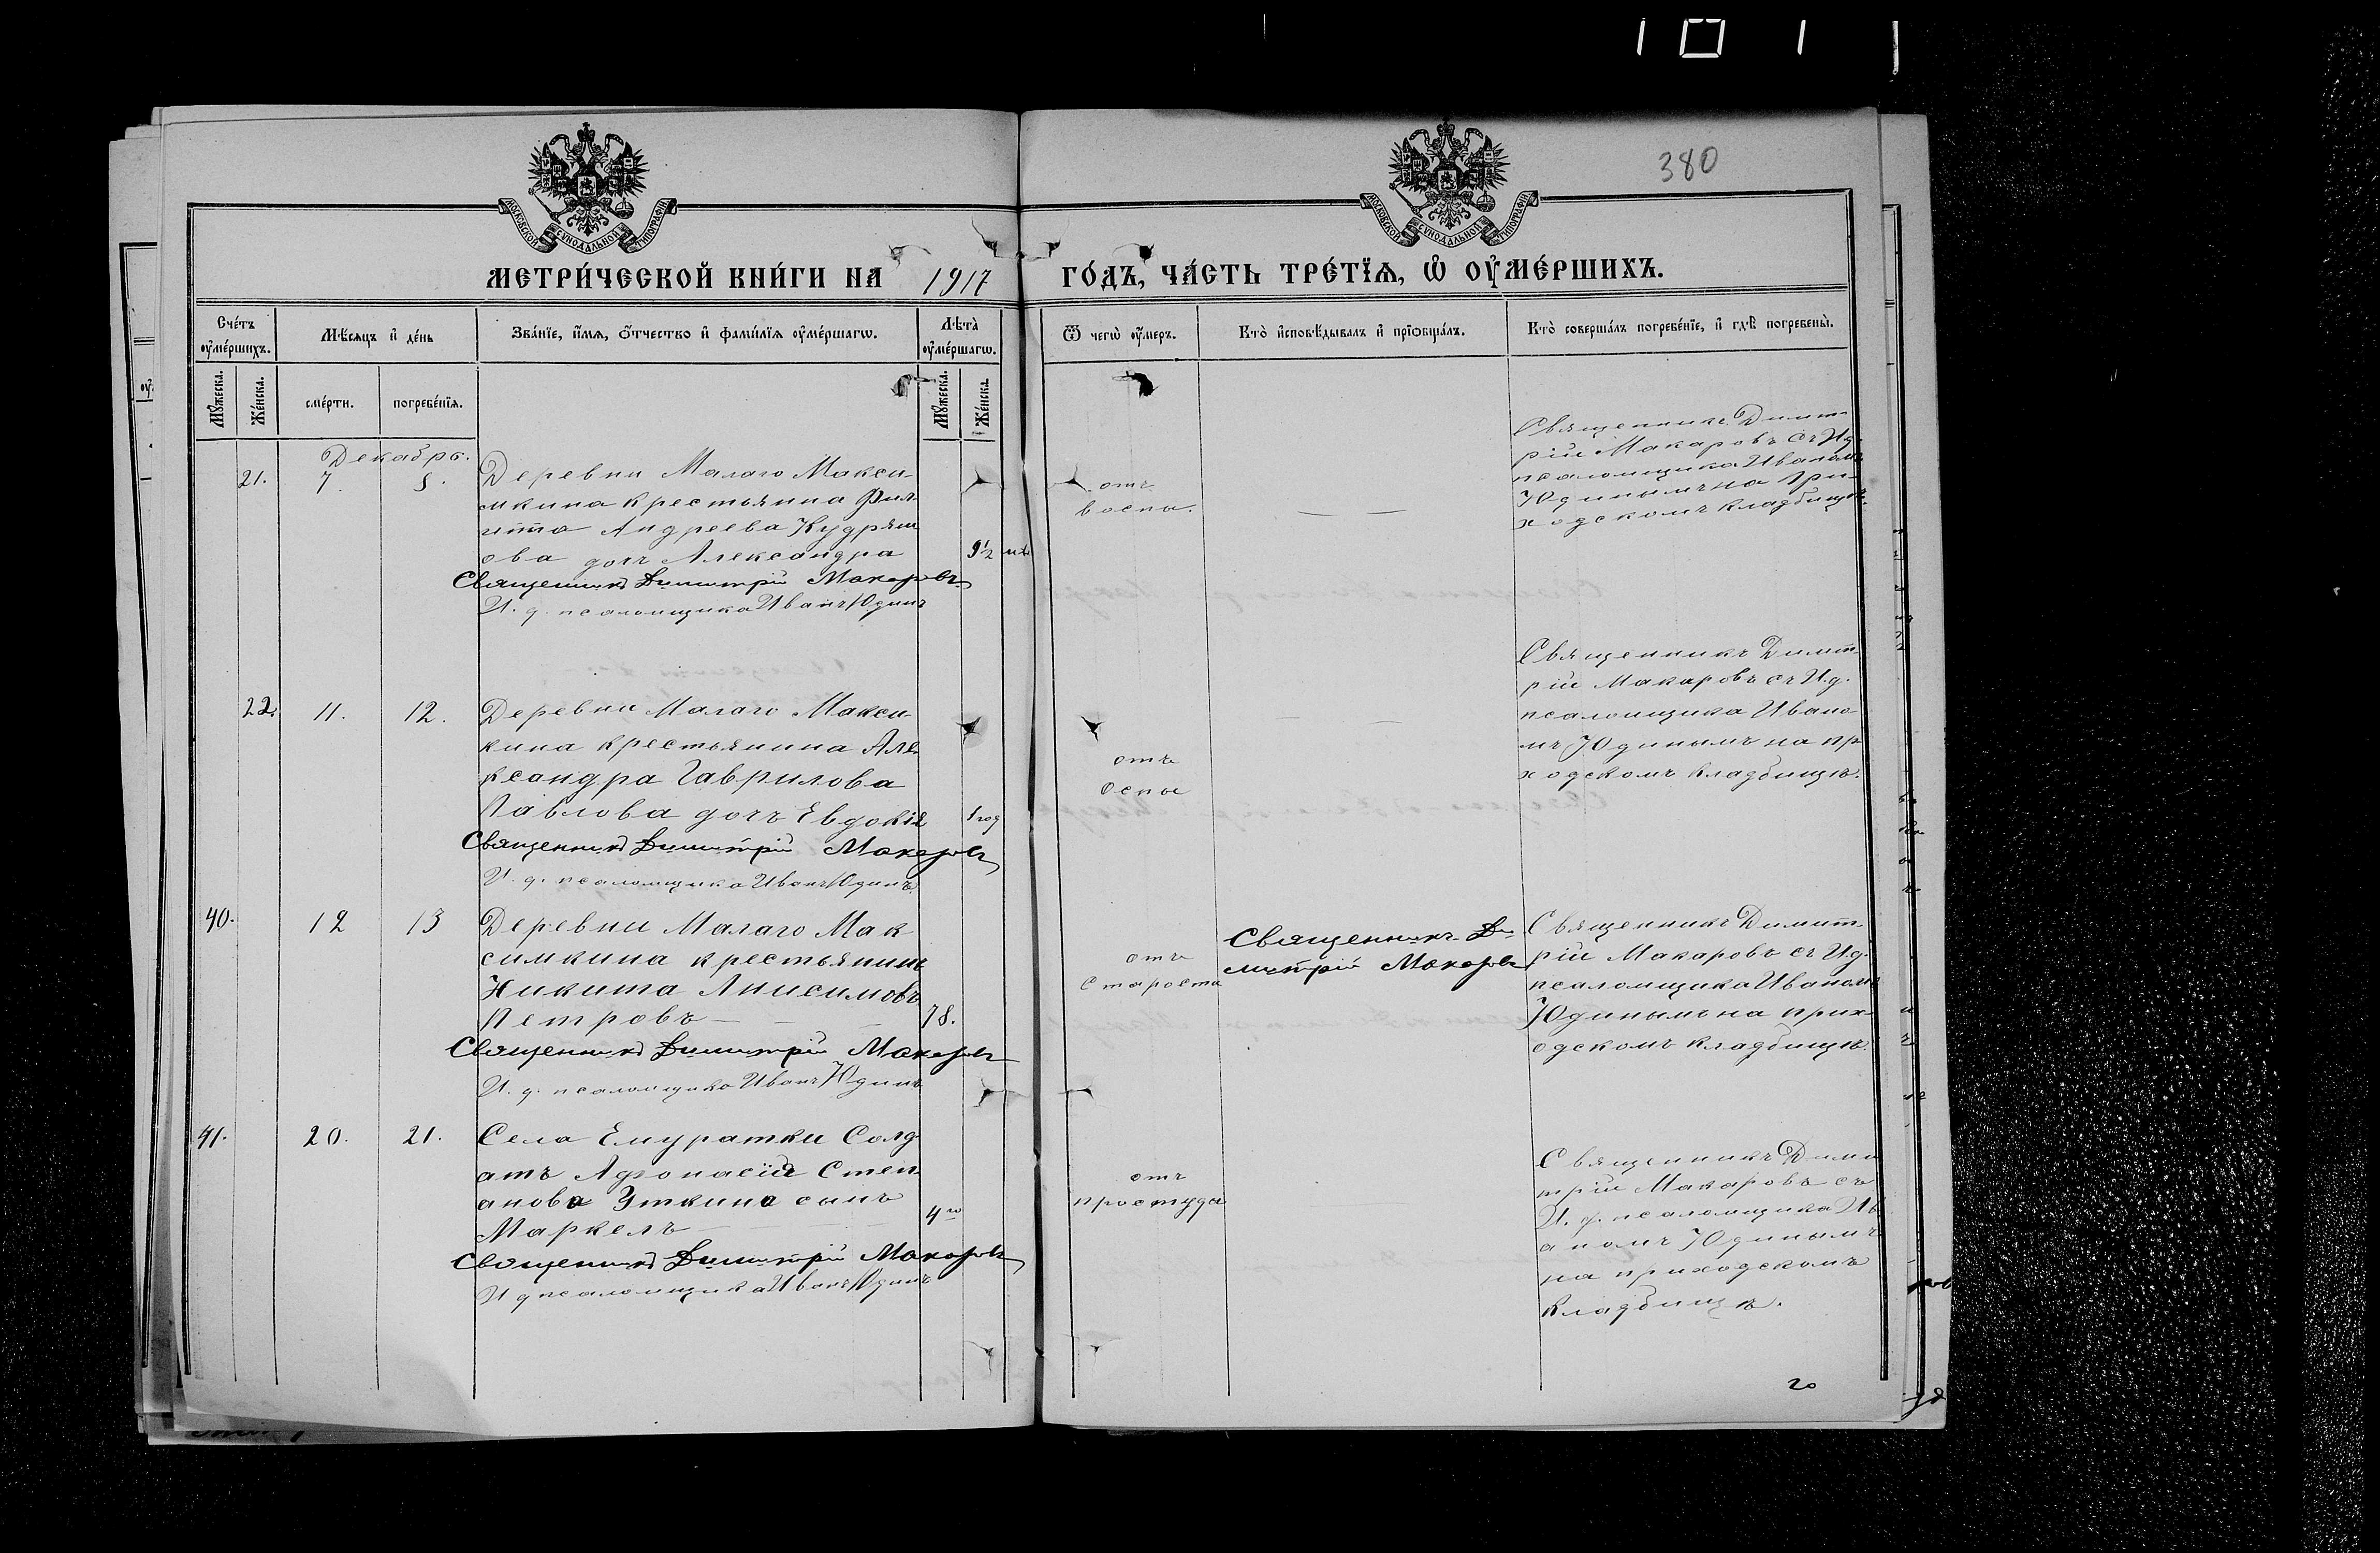 380
МОСКОВСКОЙ СѴНОДАЛЬНОЙ ТИПОГРАФІИ
МОСКОВСКОЙ СѴНОДАЛЬНОЙ ТИПОГРАФІИ
МЕТРИ́ЧЕСКОЙ КНИ́ГИ НА 1917 ГО́ДЪ, ЧА́СТЬ ТРЕ́ТЇѦ, Ѽ ОУ҆МЕ́РШИХЪ.
Сче́тъ оу҆ме́ршихъ.
Мѣ́сяцъ и҆ де́нь
Зва́нїе, и҆́мѧ, ѻ҆́тчество и҆ фами́лїѧ оу҆ме́ршагѡ.
Лѣ́та̀ оу҆ме́ршагѡ.
Ѿ чегѡ̀ оу҆́меръ.
Кто̀ и҆сповѣ́дывалъ и҆ прїѡбща́лъ.
Кто̀ соверша́лъ погребе́нїе, и҆ гдѣ̀ погребены̀.
Мꙋ́жеска.
Же́нска.
сме́рти.
погребе́нїѧ.
Мꙋ́жеска.
Же́нска.
Декабрь.
21. 7. 8.
Деревни Малаго Макси-
мкина крестьянина Фил-
иппа Андреева Кудряш
ова дочь Александра 9½ м.
Священникъ Димитрій Макаровъ
И. д. псаломщика Иванъ Юдинъ
отъ
воспы.
Священникъ Димит-
рій Макаровъ съ И.д.
псаломщика Иваномъ
Юдинымъ на при-
ходскомъ кладбищѣ.
22. 11. 12.
Деревни Малаго Макси-
кина крестьянина Але-
ксандра Гаврилова
Павлова дочь Евдокія 1 год
Священникъ Димитрій Макаровъ
И. д. псаломщика Иванъ Юдинъ
отъ
Оспы
Священникъ Димит-
рій Макаровъ съ И.д.
псаломщика Ивано-
мъ Юдинымъ на пр
ходскомъ кладбищѣ.
40. 12 13
Деревни Малаго Мак
симкина крестьянинъ
Никита Анисимовъ
Петровъ 78.
Священникъ Димитрій Макаровъ
И. д. псаломщика Иванъ Юдинъ
отъ
Староста
Священникъ Ди-
митрій Макаровъ
Священникъ Димит-
рій Макаровъ съ И.д.
псаломщика Иваномъ
Юдинымъ на прих-
одскомъ кладбищѣ.
41. 20. 21.
Села Емуратки Солд-
атъ Афонасія Степ
анова Уткина сынъ
Маркелъ 4
Священникъ Димитрій Макаровъ
И д псаломщика Иванъ Юдинъ
отъ
простуда
Священникъ Дими
трій Макаровъ съ
И. д. псаломщика Ив
аномъ Юдинымъ
на приходскомъ
кладбищѣ.